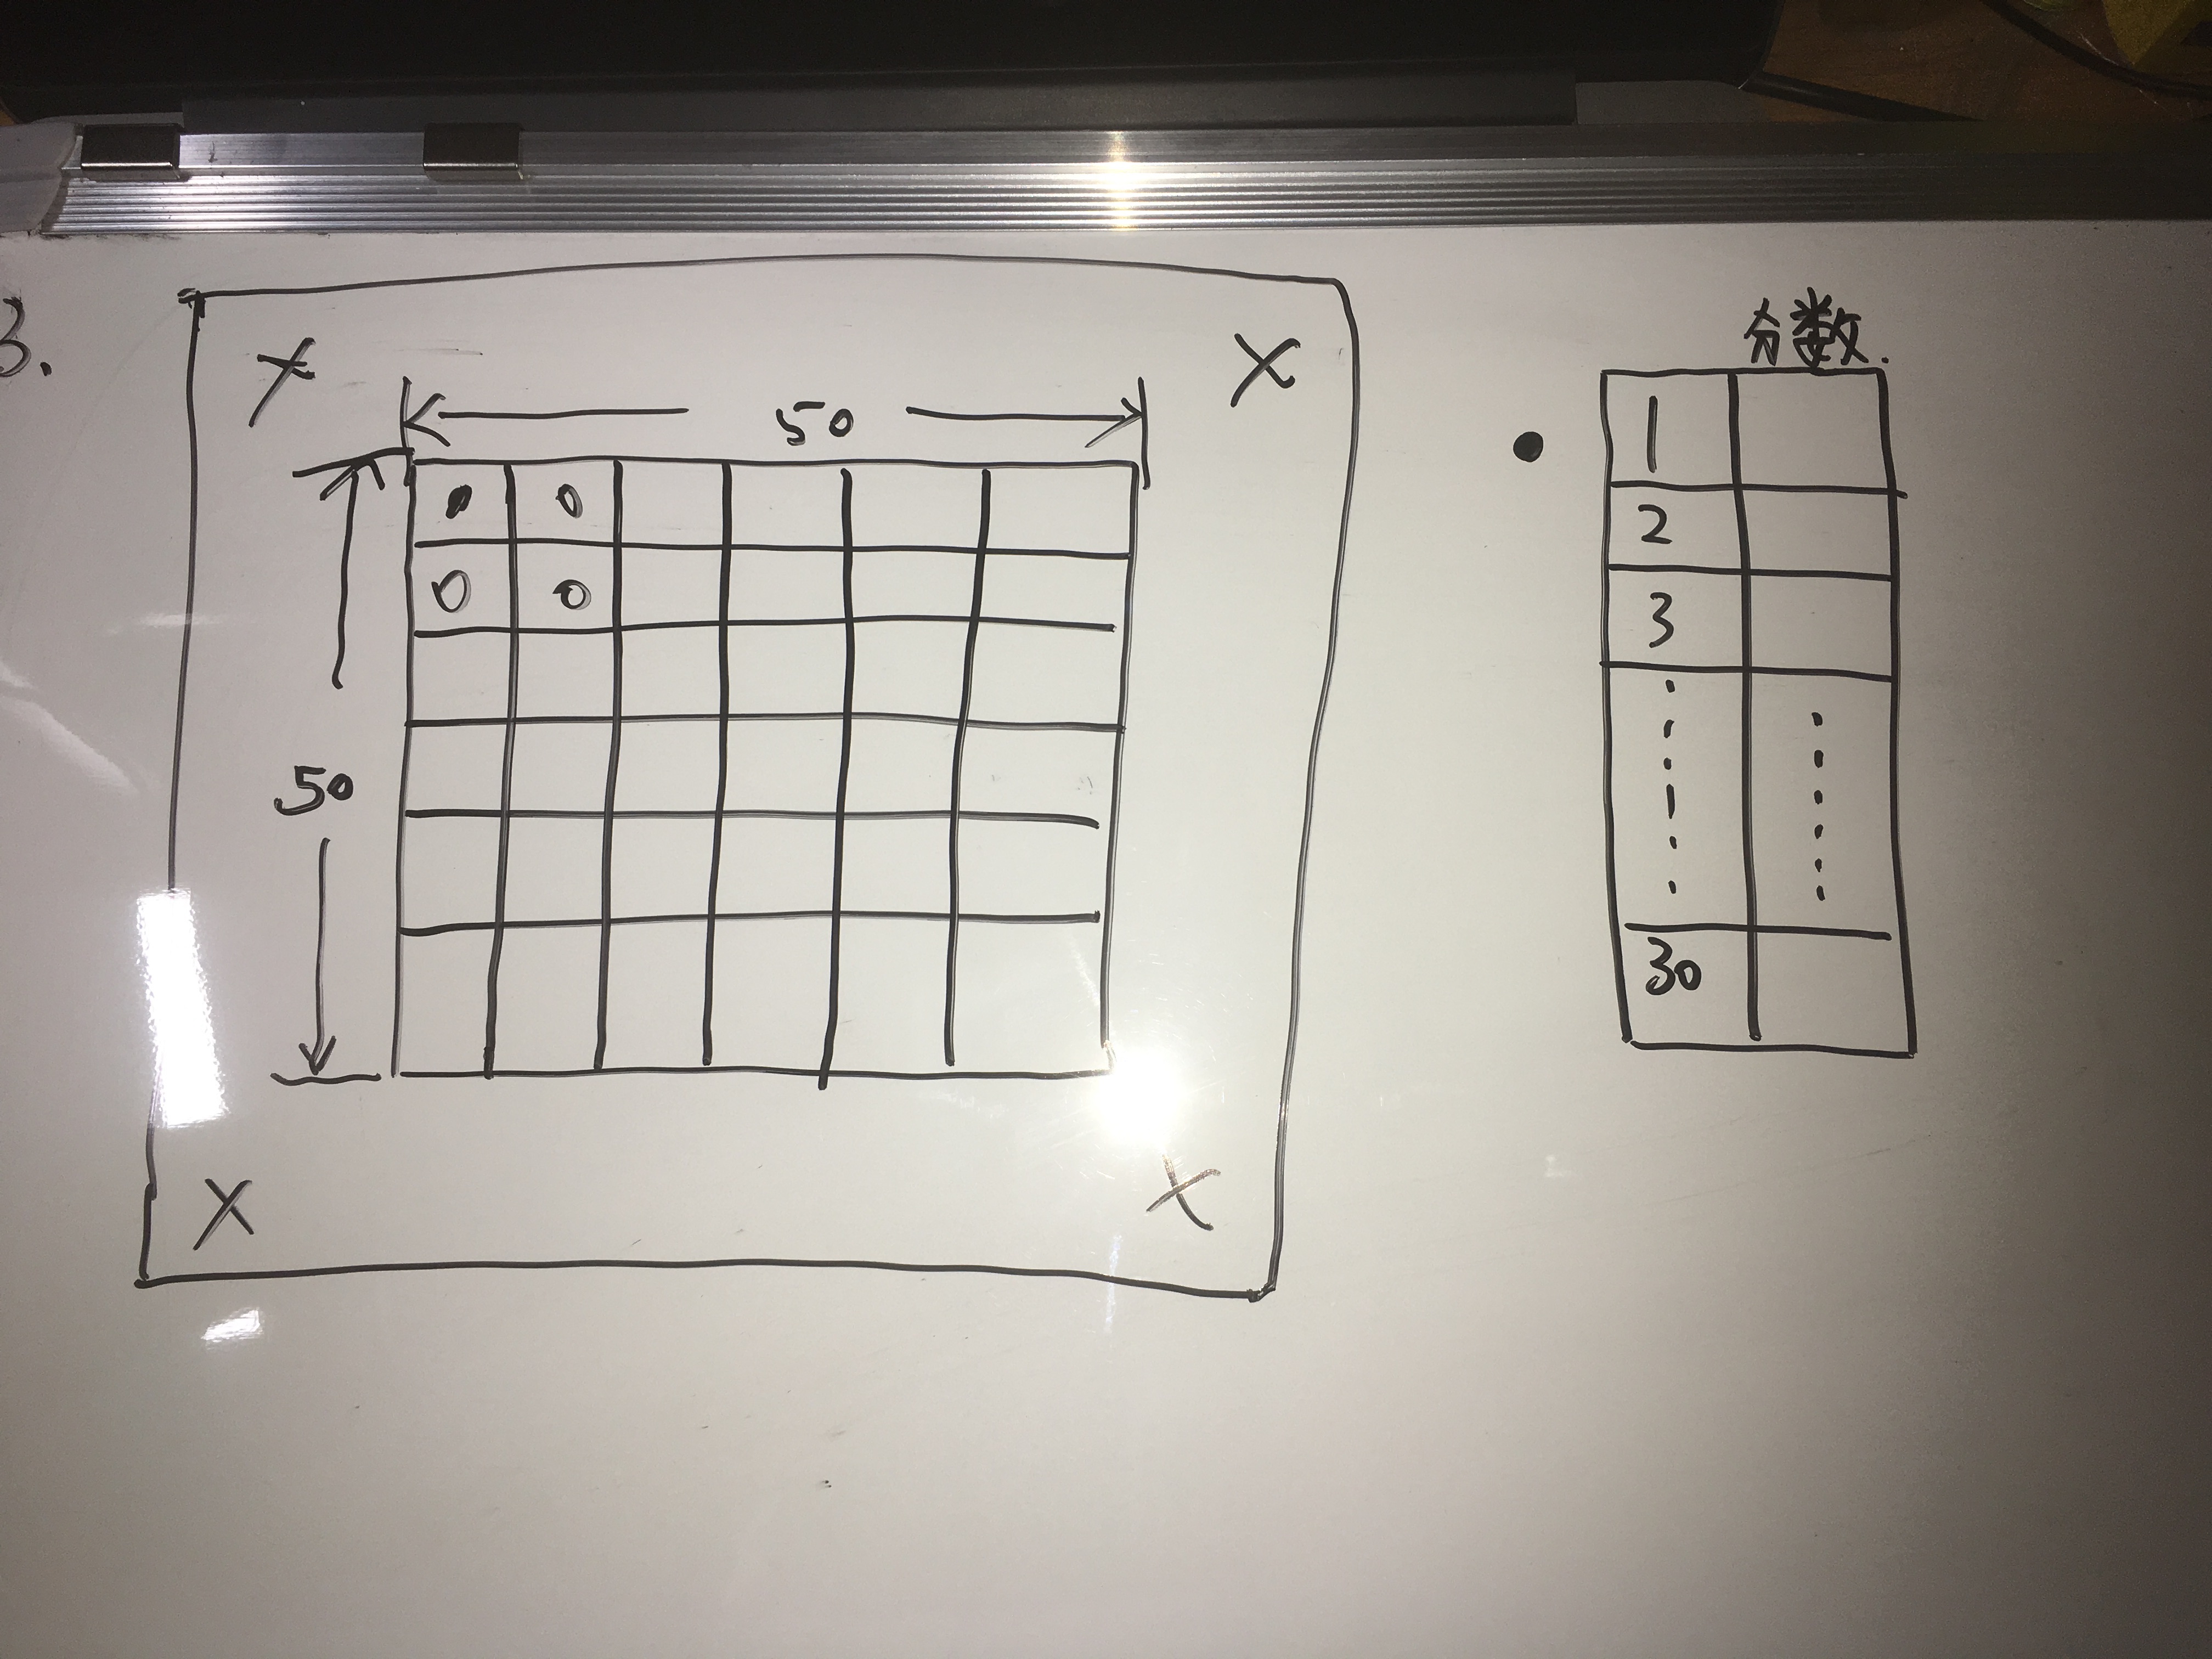 3.
X X
50
0 0
0 0
50
X X
分数.
1
2
3
30